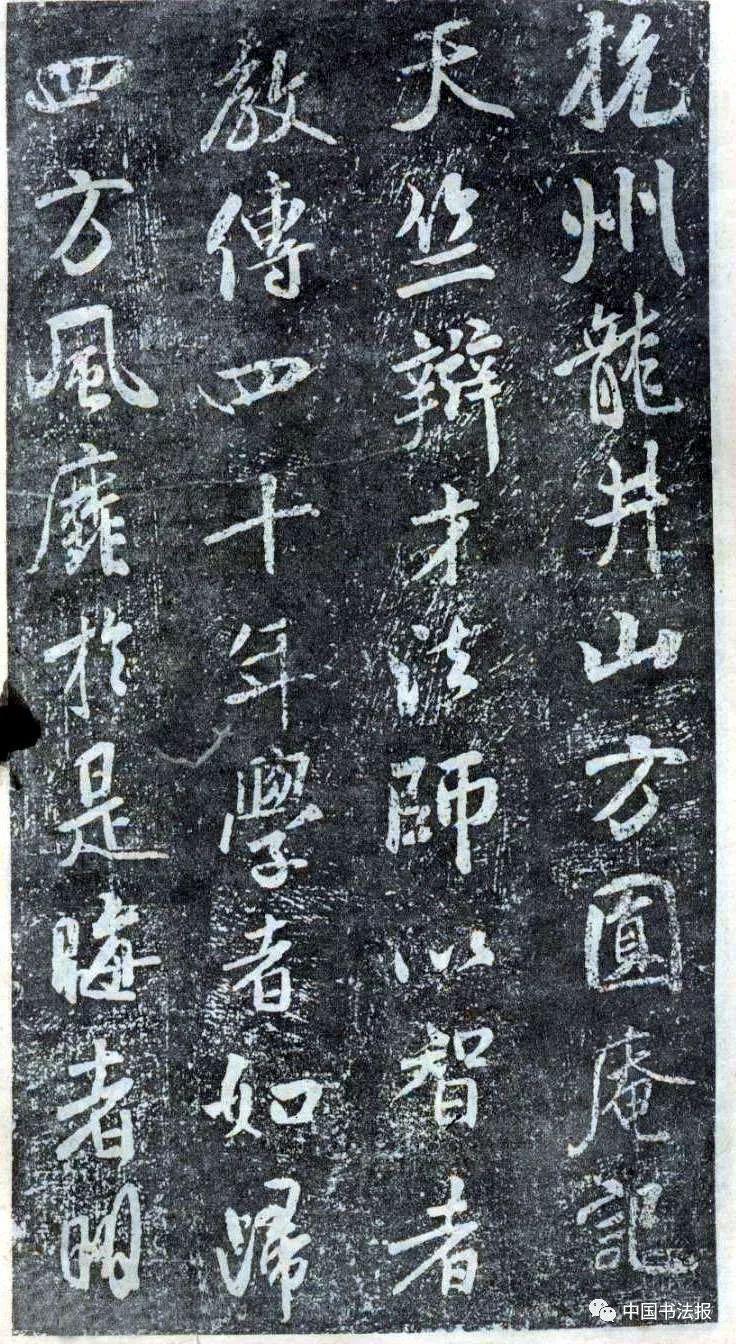 杭州龍井山方圓庵記
天竺辯才法師以智者
教傳四十年學者如歸
四方風靡於是晦者明
中国书法报